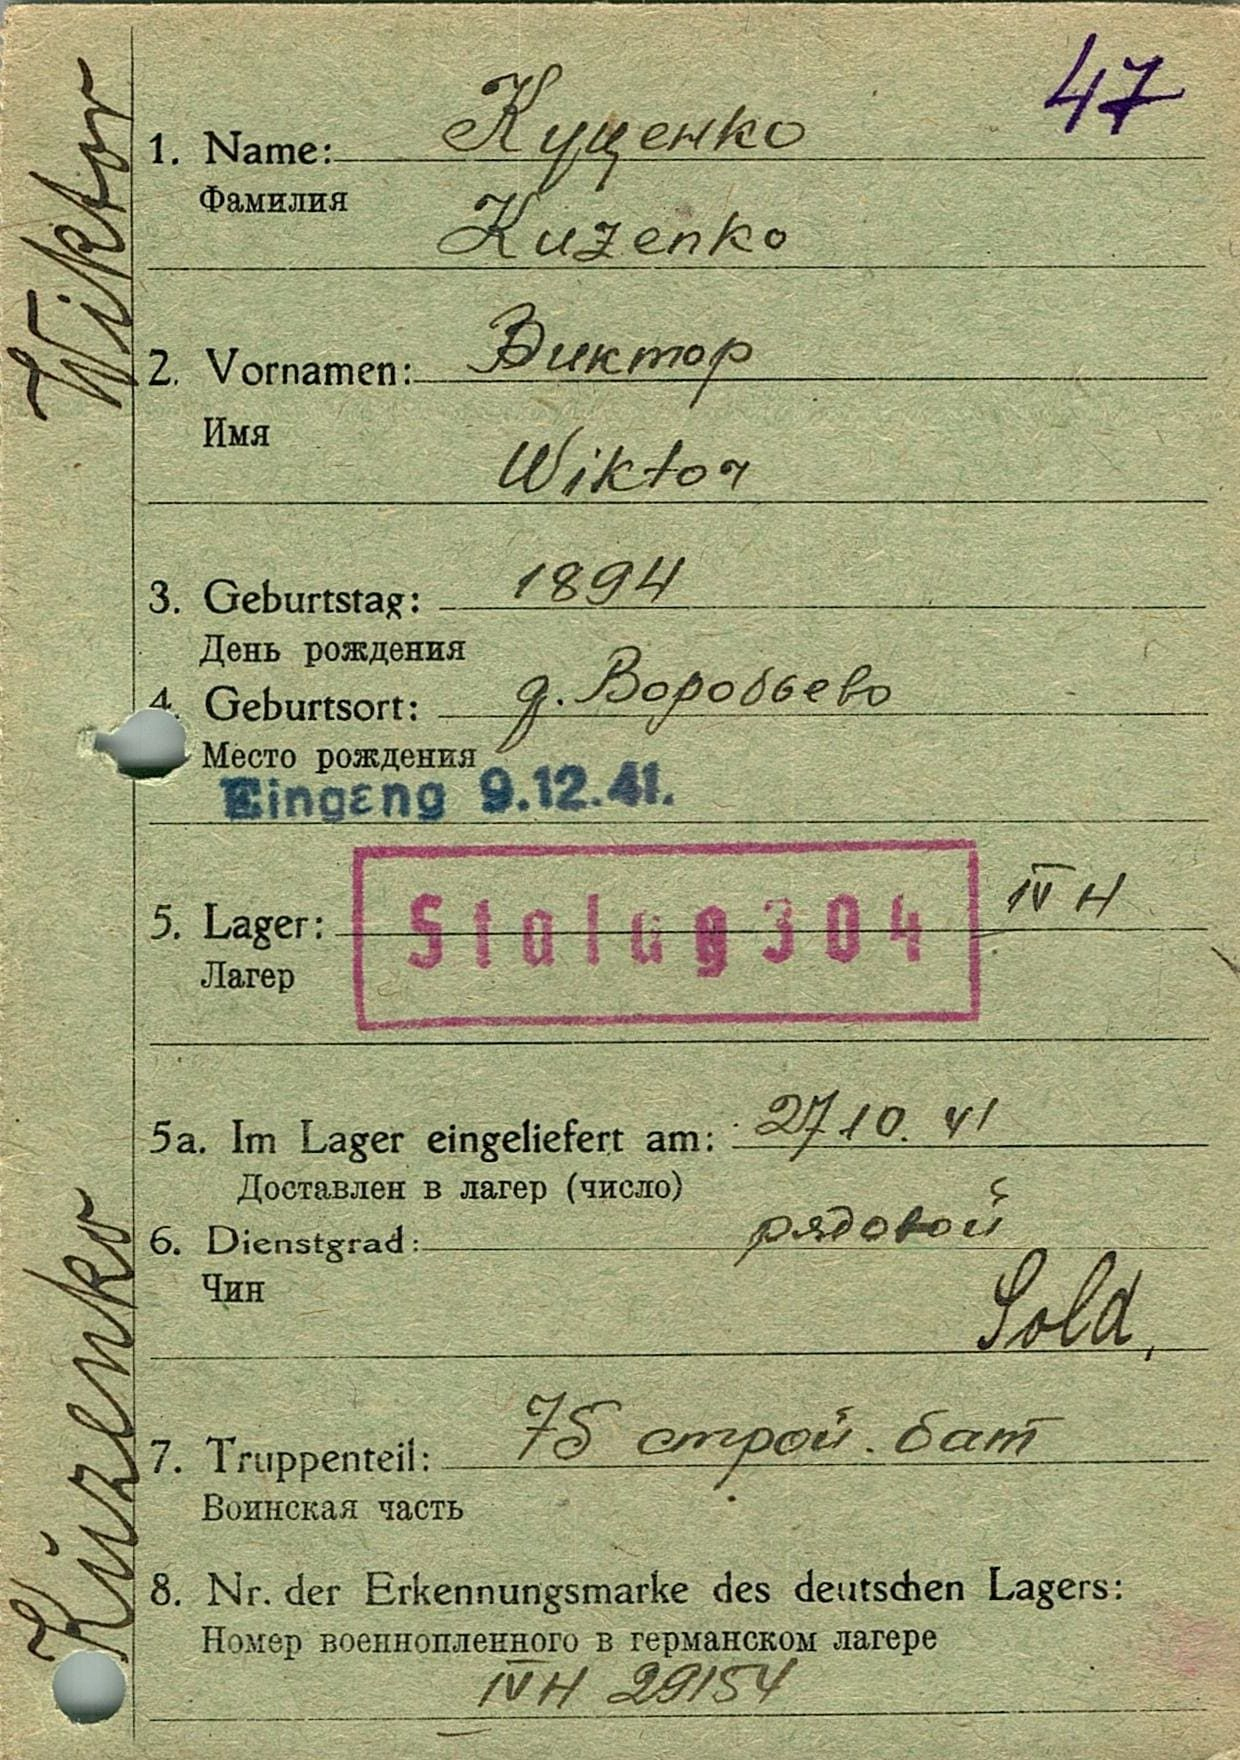 47
1. Name: Куценко
Фамилия
Kuzenko
2. Vornamen: Виктор
Имя
Wiktor
3. Geburtstag: 1894
День рождения
4. Geburtsort: д. Воробьево
Место рождения
Eingang 9.12.41.
5. Lager: Stalag 304 IV H
Лагер
5a. Im Lager eingeliefert am: 27 10. 41
Доставлен в лагер (число)
6. Dienstgrad: рядовой
Чин
Sold,
7. Truppenteil: 75 строй. бат
Воинская часть
8. Nr. der Erkennungsmarke des deutschen Lagers:
Номер военнопленного в германском лагере
IV H 29154
Kuzenko Wiktor